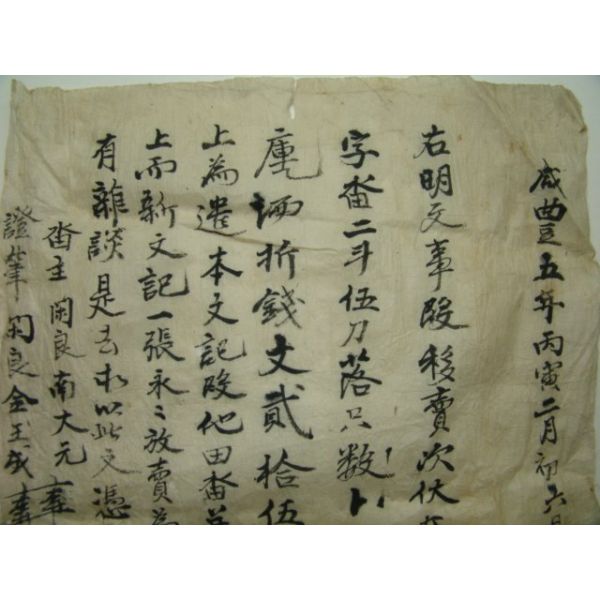 咸豊五年丙寅二月初六日
右明文事段移賣次伏
字畓二斗伍刀落只数卜
折錢文貳拾伍
上為遣本文記段他田畓
上而新文記一張永〻放賣為
有雜談是去等以此文憑
畓主閑良南大元
證筆閑良金玉成